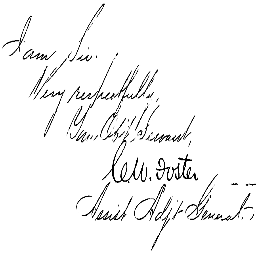 I am Sir.
Very respectfully,
Your Obdt. Servant,
C. W. Foster
Assist Adjt General.